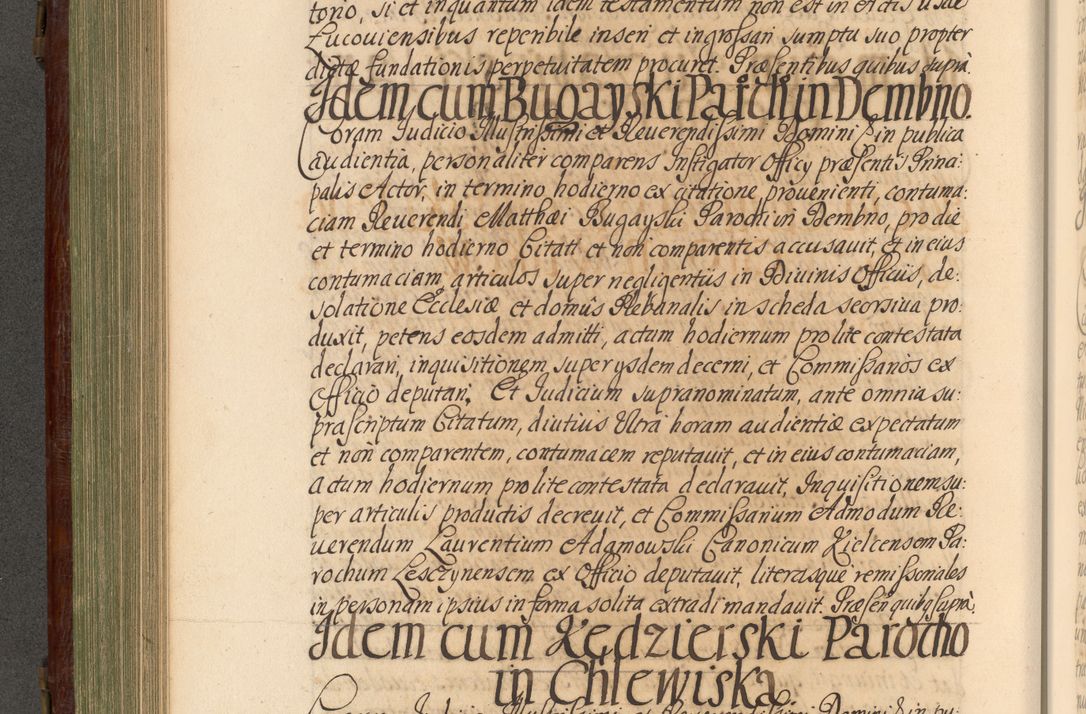 torio, si et inquantum idem testamentum non est in Actis usae
Lucouiensibus reperibile inseri et ingrossari sumptu suo propter
dictæ fundationis perpetuitatem procuret. Præsentibus quibus suprà.
Idem cum Bugayski Paroch in Dembno.
Coram Judicio Illustrissimi et Reuerendissimi Domini & in publica
audientia, personaliter comparens Instigator Officÿ præsentis Prin-
cipalis Actor, in termino hodierno ex citatione prouenienti, contuma:
ciam Reuerendi Matthæi Bugayski Parochi in Dembno, pro die
et termino hodierno Citati et non comparentis accusauit, et in eius
contumaciam, articulos super negligentiis in Diuinis Officiis, de:
solatione Ecclesiæ et domûs Plebanalis in scheda seorsiua pro:
duxit, petens eosdem admitti, actum hodiernum pro lite contestata
declarari, inquisitionem super ysdem decerni, et Commissarios ex
Officio deputari. Et Judicium supranominatum, ante omnia su:
prascriptum Citatum, diutius Ultra horam audientiæ expectatum
et non comparentem, contumacem reputauit, et in eius contumaciam,
actum hodiernum pro lite contestata declarauit, Inquisitionem su:
per articulis productis decreuit, et Commissarium Admodum Re:
uerendum Laurentium Adamowski Canonicum Kielcensem Pa:
rochum Leszczynensem ex Officio deputauit, literasque remissoriales
in personam ipsius in forma solita extradi mandauit. Præsen: quibus suprà.
Idem cum Kedzierski Parocho
in Chlewiska.
Coram Judicio Illustrissimi et Reuerendissimi Domini & in pu: